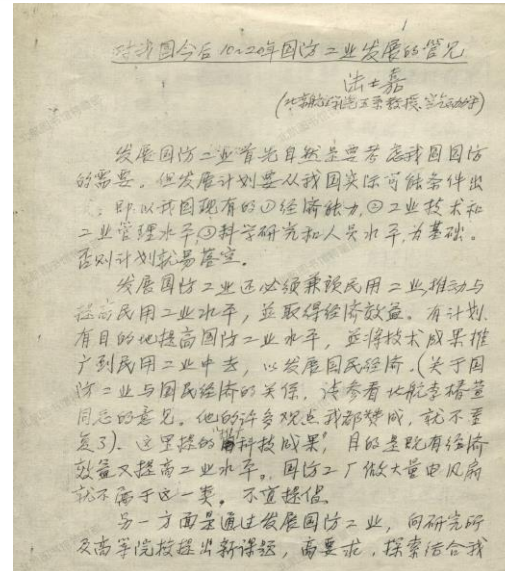 1
对我国今后10~20年国防工业发展的管见
陆士嘉
(北京航空学院五系教授、空气动力学)
发展国防工业首先自然是要考虑我国国防
的需要。但发展计划要从我国实际可能条件出
,即以我国现有的①经济能力,②工业技术和
工业管理水平,③科学研究和人员水平,为基础。
否则计划就易落空。
发展国防工业还必须兼顾民用工业,推动与
提高民用工业水平,並取得经济效益。有计划
有目的地提高国防工业水平,並将技术成果推
广到民用工业中去,以发展国民经济。(关于国
防工业与国民经济的关系,请参看北航李椿萱
同志的意见。他的许多观点我都赞成,就不重
复了)。这里提的科技成果,目的是既有经济
效益又提高工业水平。国防工厂做大量电风扇
就不属于这一类。不宜提倡。
另一方面是通过发展国防工业,向研究所
及高等院校提出新课题,高要求,探索结合我